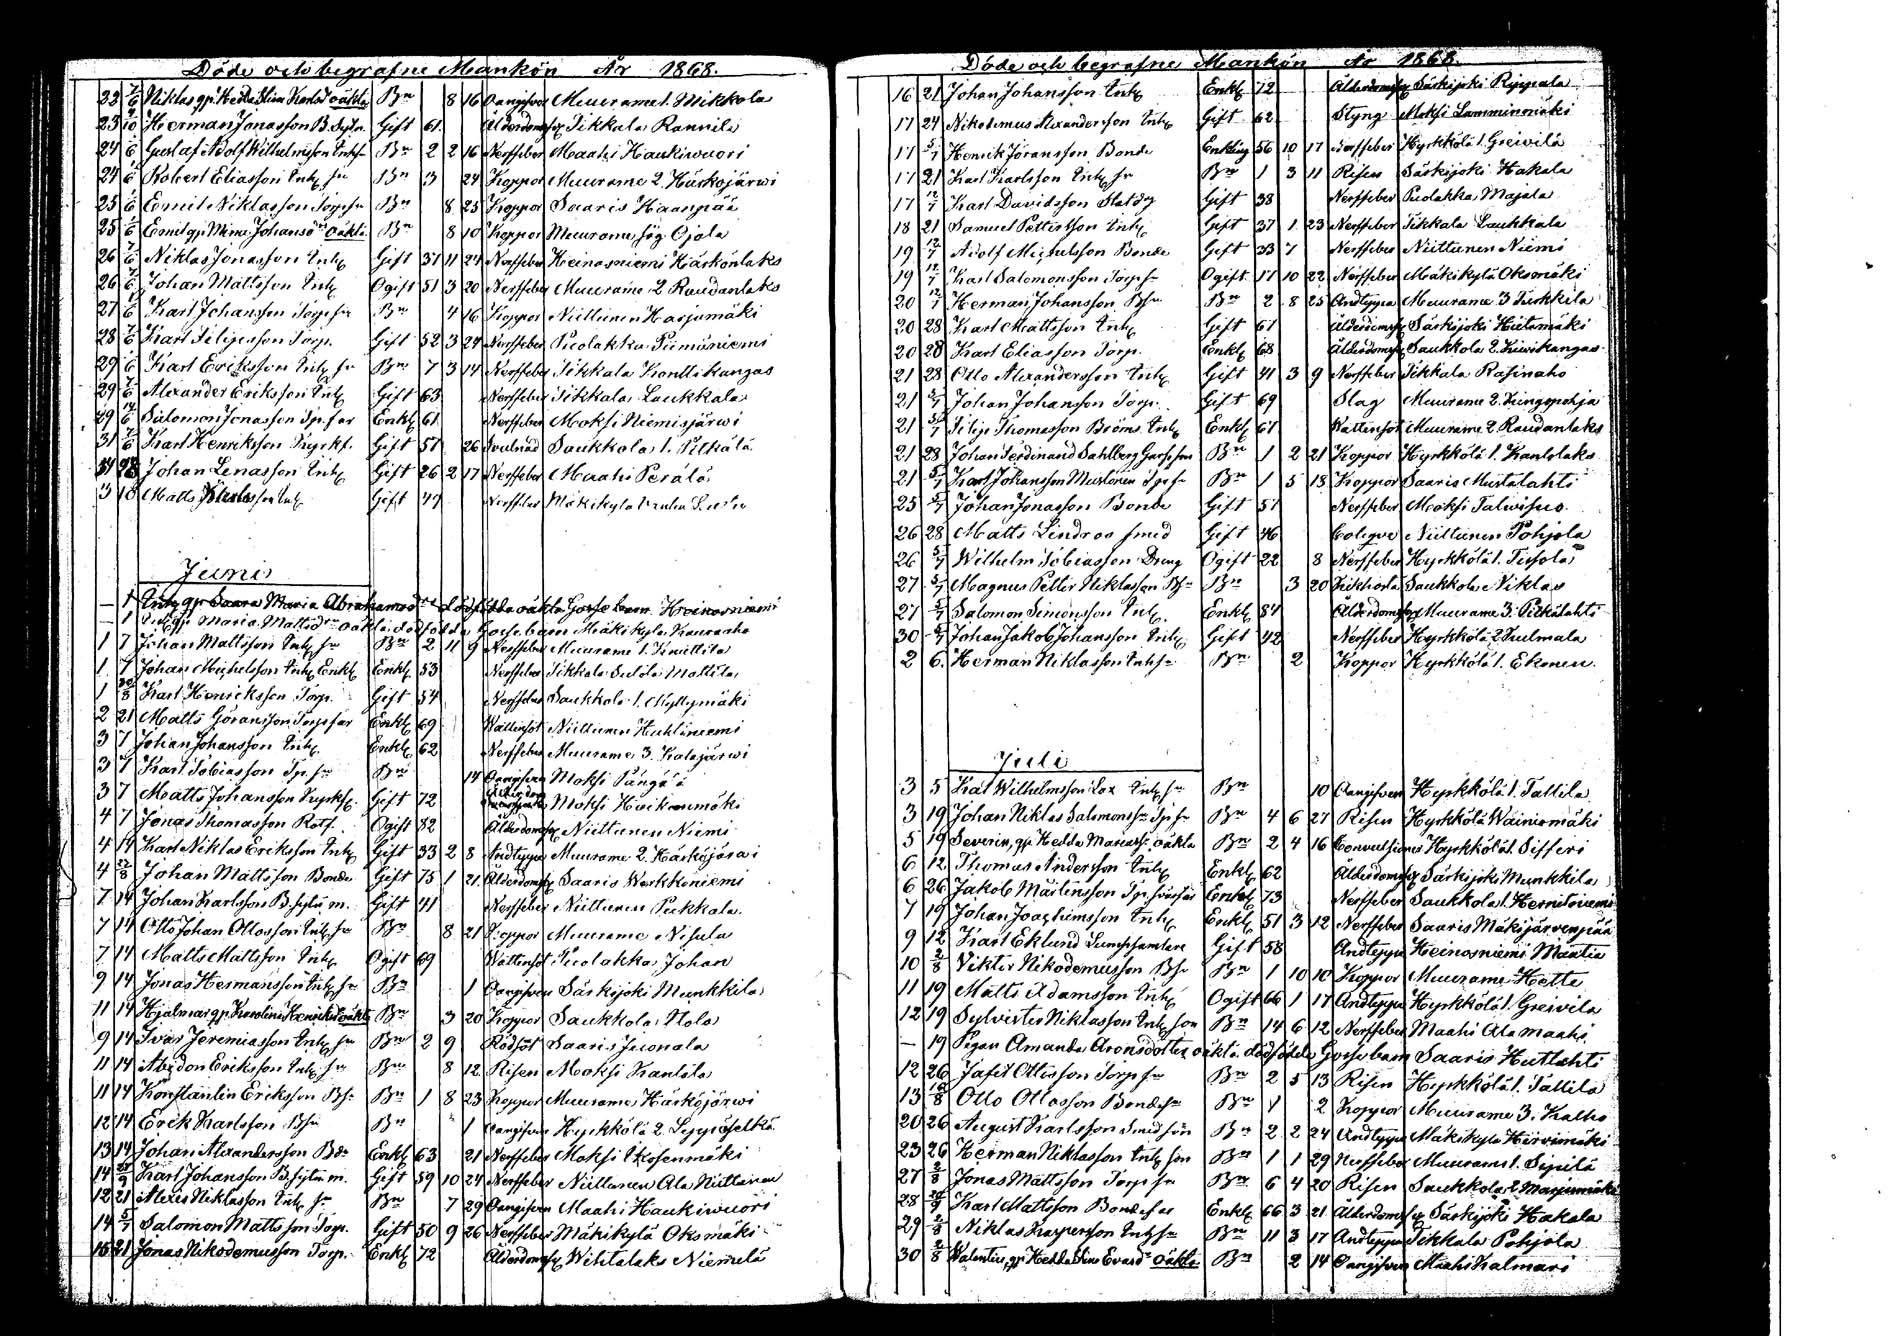 Döde och begrafne Mankön År 1868.
22 7/6 Niklas gp. Hedda Stina Karlsd oäkta Bn 8 16 Oangifven Muurame 1. Mikkola
23 9/10 Herman Jonasson B. Sytn. Gift 61 Ålderdomsbr Tikkala Rannila
24 1/6 Gustaf Adolf Wilhelmsson Bn 2 2 16 Nerffeber Maahi Haukiwuori
24 1/6 Robert Eliasson Inh sn Bn 3 24 Koppor Muurame 2. Härköjärwi
25 1/6 Emil Niklasson Torp sn Bn 8 25 Koppor Saaris Haanpää
25 1/6 Emil gp. Mina Johansdr oäkta Bn 8 10 Koppor Muurame Ojala
26 7/6 Niklas Jonasson Inh Gift 37 11 24 Nerffeber Heinosniemi Härkönlaks
26 7/6 Johan Mattsson Inh Ogift 51 3 20 Nerffeber Muurame 2 Raudanlaks
27 1/6 Karl Johansson Torp sn Bn 4 16 Koppor Niittunen Harjumäki
28 7/6 Karl Filipsson Torp. Gift 52 3 24 Nerffeber Puolakka Piimäniemi
29 1/6 Karl Eriksson Inh sn Bn 7 3 14 Nerffeber Tikkala Konttikangas
29 7/6 Alexander Eriksson Inh Gift 63 Nerffeber Tikkala Laukkala
29 14/6 Salomon Jonasson Tp. far Enkl 61 Nerffeber Moksi Niemisjärwi
31 7/6 Karl Henriksson Gift 51 26 Saukkola 1. Pitkälä
31 28 Johan Lenasson Inh Gift 26 2 17 Nerffeber Maahi Perälä
3 18 Matts Inh Gift 47 Nerffeber Mäkikylä
Juni
— 1 Inh gp. Saara Maria Abrahamsdr dödfödda oäkta Gossebarn Heinosniemi
— 1 Maria Mattsdr oäkta dödfödda Gossebarn Mäkikylä
1 7 Johan Mattsson Inh sn Bn 2 11 9 Nerffeber Muurame 1. Knuttila
1 7 Johan Michelsson Inh Enkl Enkl 53 Nerffeber Tikkala Mattila
1 30/8 Karl Henriksson Torp. Gift 54 Nerffeber Saukkola 1. Myllymäki
2 21 Matts Göransson Torp far Enkl 69 Wattensot Niittunen Huhtiniemi
3 7 Johan Johansson Inh. Enkl 62 Nerffeber Muurame 3. Kalajärwi
3 7 Karl Tobiasson Tp. sn Bn 14 Oangifven Moksi
3 7 Matts Johansson Gift 72 Moksi
4 7 Jonas Thomasson Rotf. Ogift 82 Ålderdomsbr Niittunen Niemi
4 14 Karl Niklas Eriksson Inh Gift 33 2 8 Andtäppa Muurame 2. Härköjärwi
4 23/8 Johan Mattsson Bonde Gift 75 1 21 Ålderdomsbr Saaris Werkkoniemi
7 14 Johan Karlsson B. sytn m. Gift 41 Nerffeber Niittunen Pekkala
7 14 Otto Johan Ottosson Inh sn Bn 8 21 Koppor Muurame Nisula
7 14 Matts Mattsson Inh Ogift 69 Wattensot Puolakka Johan
9 14 Jonas Hermansson Inh sn Bn 1 Oangifven Särkijoki Munkkila
11 14 Hjalmar gp. Karolina Henriksdr oäkta Bn 3 20 Koppor Saukkola Stola
9 14 Ivar Jeremiasson Inh sn Bn 2 9 Rödsot Saaris Juonala
11 14 Abedon Eriksson Inh sn Bn 8 12 Risen Moksi Kantola
11 14 Konstantin Eriksson B sn Bn 1 8 23 Koppor Muurame Härköjärwi
12 14 Erik Karlsson B sn Bn 1 Oangifven Hyrkkölä 2
13 14 Johan Alexandersson Bde Enkl 63 21 Nerffeber Moksi
14 28/9 Karl Johansson B. sytn m. Gift 59 10 24 Nerffeber Niittunen Ala Niittunen
12 21 Alexis Niklasson Inh sn Bn 7 29 Oangifven Maahi Haukiwuori
14 5/7 Salomon Mattsson Torp. Gift 50 9 26 Nerffeber Mäkikylä Oksmäki
15 21 Jonas Nikodemusson Torp. Enkl 72 Ålderdomsbr Wihtalaks Niemelä
Döde och begrafne Mankön År 1868.
16 21 Johan Johansson Inh Enkl 72 Ålderdomsbr Särkijoki Rippala
17 24 Nikodemus Alexandersson Inh Gift 62 Styng Moksi Lamminmäki
17 5/7 Henrik Jöransson Bonde Enkling 56 10 17 Nerffeber Hyrkkölä 1. Greivilä
17 21 Karl Karlsson Inh sn Bn 1 3 11 Risen Särkijoki Hakala
17 12/7 Karl Davidsson Gift 38 Nerffeber Puolakka Majala
18 21 Samuel Pettersson Inh Gift 37 1 23 Nerffeber Tikkala Laukkala
19 12/7 Adolf Michelsson Bonde Gift 33 7 Nerffeber Niittunen Niemi
19 12/7 Karl Salomonsson Torp sn Ogift 17 10 22 Nerffeber Mäkikylä Oksmäki
20 12/7 Herman Johansson B sn Bn 2 8 25 Andtäppa Muurame 3 Turkkila
20 28 Karl Mattsson Inh Gift 61 Ålderdomsbr Särkijoki Hietamäki
20 28 Karl Eliasson Torp. Enkl 68 Ålderdomsbr Saukkola 2. Kiwikangas
21 28 Otto Alexandersson Inh Gift 41 3 9 Nerffeber Tikkala Rasinaho
21 5/7 Johan Johansson Torp. Gift 69 Slag Muurame 2.
21 5/7 Filip Thomasson Broms Inh Enkl 61 Wattensot Muurame 2 Raudanlaks
21 28 Johan Ferdinand Dahlberg Bn 1 2 21 Koppor Hyrkkölä 1.
21 5/7 Karl Johansson Mustonen Tp. sn Bn 1 5 18 Koppor Saaris Mustalahti
25 5/7 Johan Jonasson Bonde Gift 51 Nerffeber Moksi Talwisuo
26 28 Matts Lindroos smed Gift 46 Colique Niittunen Pohjola
26 5/7 Wilhelm Tobiasson Dreng Ogift 22 8 Nerffeber Hyrkkölä 1.
27 5/7 Magnus Petter Niklasson B sn Bn 3 20 Kikhosta Saukkola Niklas
27 5/7 Salomon Simonsson Inh. Enkl 84 Ålderdomsbr Muurame 3. Pitkälahti
30 5/7 Johan Jakob Johansson Inh Gift 42 Nerffeber Hyrkkölä 2
2 6. Herman Niklasson Inh sn Bn 2 Koppor Hyrkkölä 1. Ekonen
Juli
3 5 Karl Wilhelmsson Lax Inh sn Bn 10 Oangifven Hyrkkölä 1. Tattila
3 19 Johan Niklas Salomonsson Tp. sn Bn 4 6 27 Risen Hyrkkölä Wäinömäki
5 19 Severin, gp. Hedda oäkta Bn 2 4 16 Convulsioner Hyrkkölä 1. Sifferi
6 12 Thomas Andersson Inh Enkl 62 Ålderdomsbr Särkijoki Munkkila
6 26 Jakob Mårtensson Tp. Enkl 73 Nerffeber Saukkola 1. Hernesniemi
7 19 Johan Joachimsson Inh Enkl 51 3 12 Nerffeber Saaris Mäkijärvenpää
9 12 Karl Eklund Lumpsamlare Gift 58 Andtäppa Heinosniemi Mäntlä
10 2/8 Viktor Nikodemusson B sn Bn 1 10 10 Koppor Muurame Hette
11 19 Matts Adamsson Inh Ogift 66 1 17 Andtäppa Hyrkkölä 1. Greivilä
12 19 Sylvester Niklasson Inh son Bn 14 6 12 Nerffeber Maahi Ala maahi
— 19 Pigan Amanda Aronsdotter oäkta dödfödda Gossebarn Saaris Huttahti
12 26 Jafet Ottosson Torp sn Bn 2 5 13 Risen Hyrkkölä 1. Tattila
13 16/8 Otto Ottosson Bonde sn Bn 1 2 Koppor Muurame 3. Kalho
20 26 August Karlsson Smed son Bn 2 2 24 Andtäppa Mäkikylä Hirvimäki
23 26 Herman Niklasson Inh son Bn 1 1 29 Nerffeber Muurame 1. Sipilä
27 2/8 Jonas Mattsson Torp sn Bn 6 4 20 Risen Saukkola 2 Marjumäki
28 20/9 Karl Mattsson Bonde far Enkl 66 3 21 Ålderdomsbr Särkijoki Hakala
29 2/8 Niklas Kaspersson Inh sn Bn 11 3 17 Andtäppa Tikkala Pohjola
30 2/8 Valentin, gp. Hedda Stina Evasdr oäkta Bn 2 14 Oangifven Maahi Kalmari